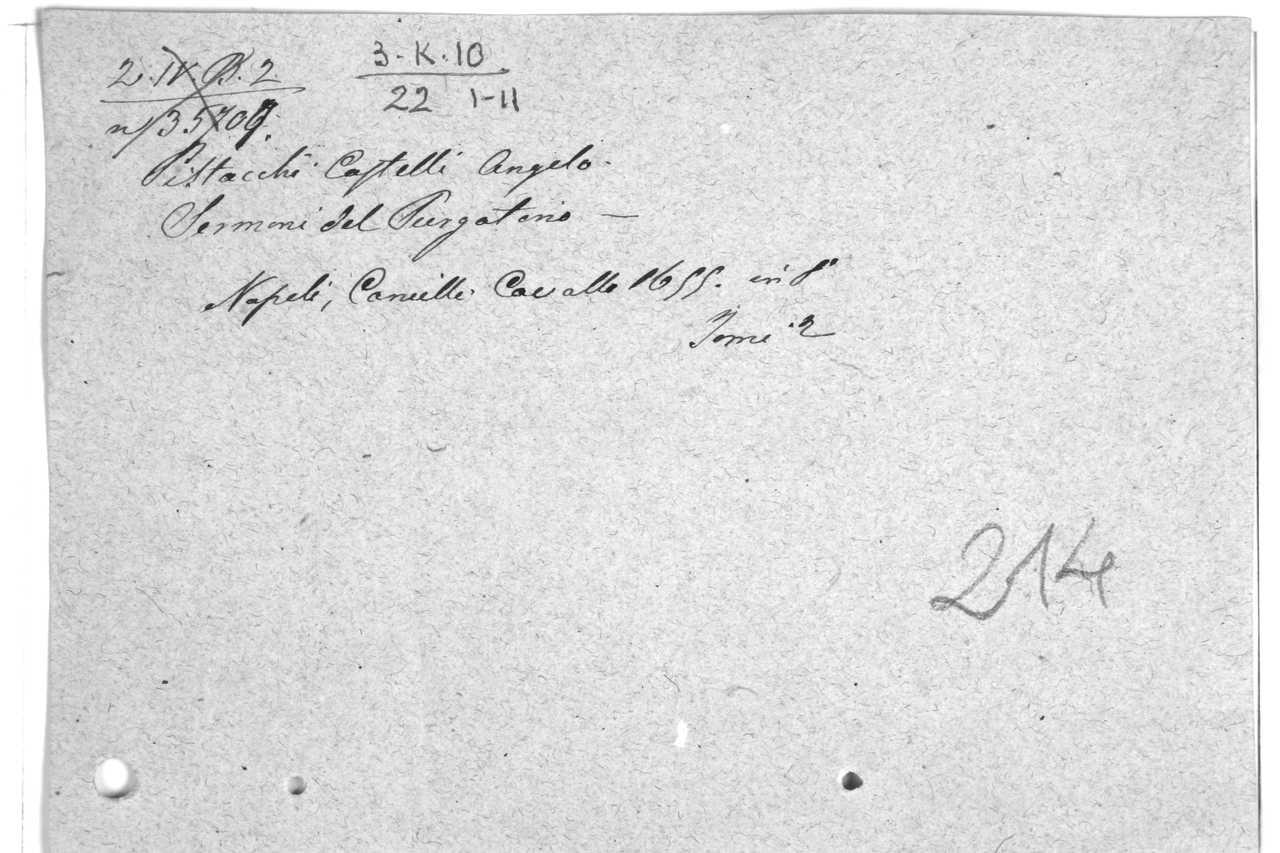 2. IV. B. 2
n/35707.
3-K.10
22 I-II
Pistacchi Castelli Angelo.
Sermoni del Purgatorio —
Napoli, Camillo Cavallo 1655. in 8°
Tome 2
214